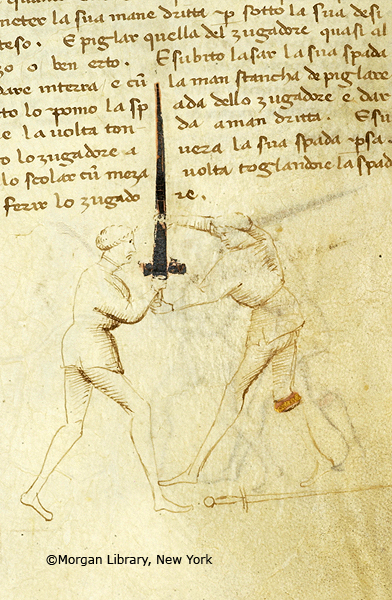 meter la sua mane dritta p sotto la sua des
teso. E piglar quella del zugadore quasi al
zo o ben erto. E subito lasar la sua spada
dare interra e cũ la man stancha de piglare
to lo pomo la sp ada dello zugadore e dar
e la volta ton da a man dritta. E su
o lo zugadore a vera la sua spada psa.
lo scolar cũ meza volta toglandoie la spad
ferir lo zugado re.
©Morgan Library, New York